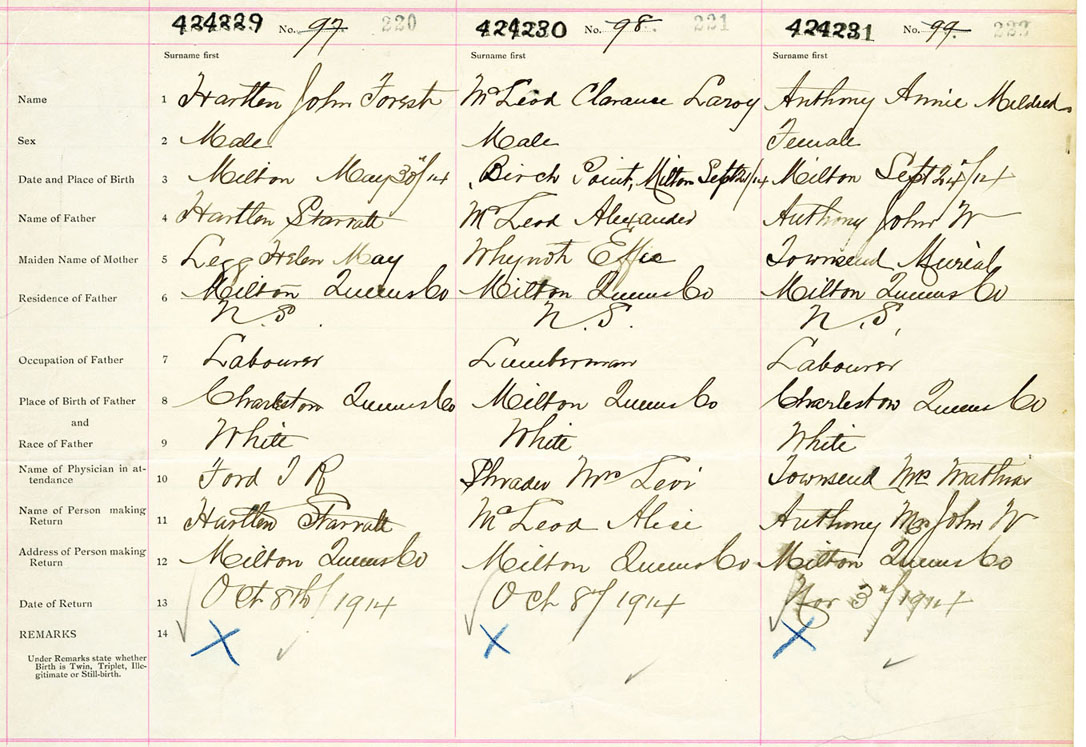 424229 No. 97 220 424230 No. 98 221 424231 No. 99 222
Surname first Surname first Surname first
Name 1 Hartlen John Forest McLeod Clarance Laroy Anthony Annie Mildred
Sex 2 Male Male Female
Date and Place of Birth 3 Milton May 30th/14 Birch Point, Milton Sept 21/14 Milton Sept 24th/14
Name of Father 4 Hartlen Starratt McLeod Alexander Anthony John W
Maiden Name of Mother 5 Legg Helen May Whynott Effie Townsend Muriel
Residence of Father 6 Milton Queens Co Milton Queens Co Milton Queens Co
N.S. N.S. N.S.
Occupation of Father 7 Labourer Lumberman Labourer
Place of Birth of Father 8 Charleston Queens Co Milton Queens Co Charleston Queens Co
and
Race of Father 9 White White White
Name of Physician in at-
tendance 10 Ford T R Shrader Mrs Levi Townsend Mrs
Name of Person making
Return 11 Hartlen Starratt McLeod Alexander Anthony Mrs John W
Address of Person making
Return 12 Milton Queens Co Milton Queens Co Milton Queens Co
Date of Return 13 Oct 8th/1914 Oct 8/1914 Nov 3rd/1914
REMARKS 14
Under Remarks state whether
Birth is Twin, Triplet, Ille-
gitimate or Still-birth.